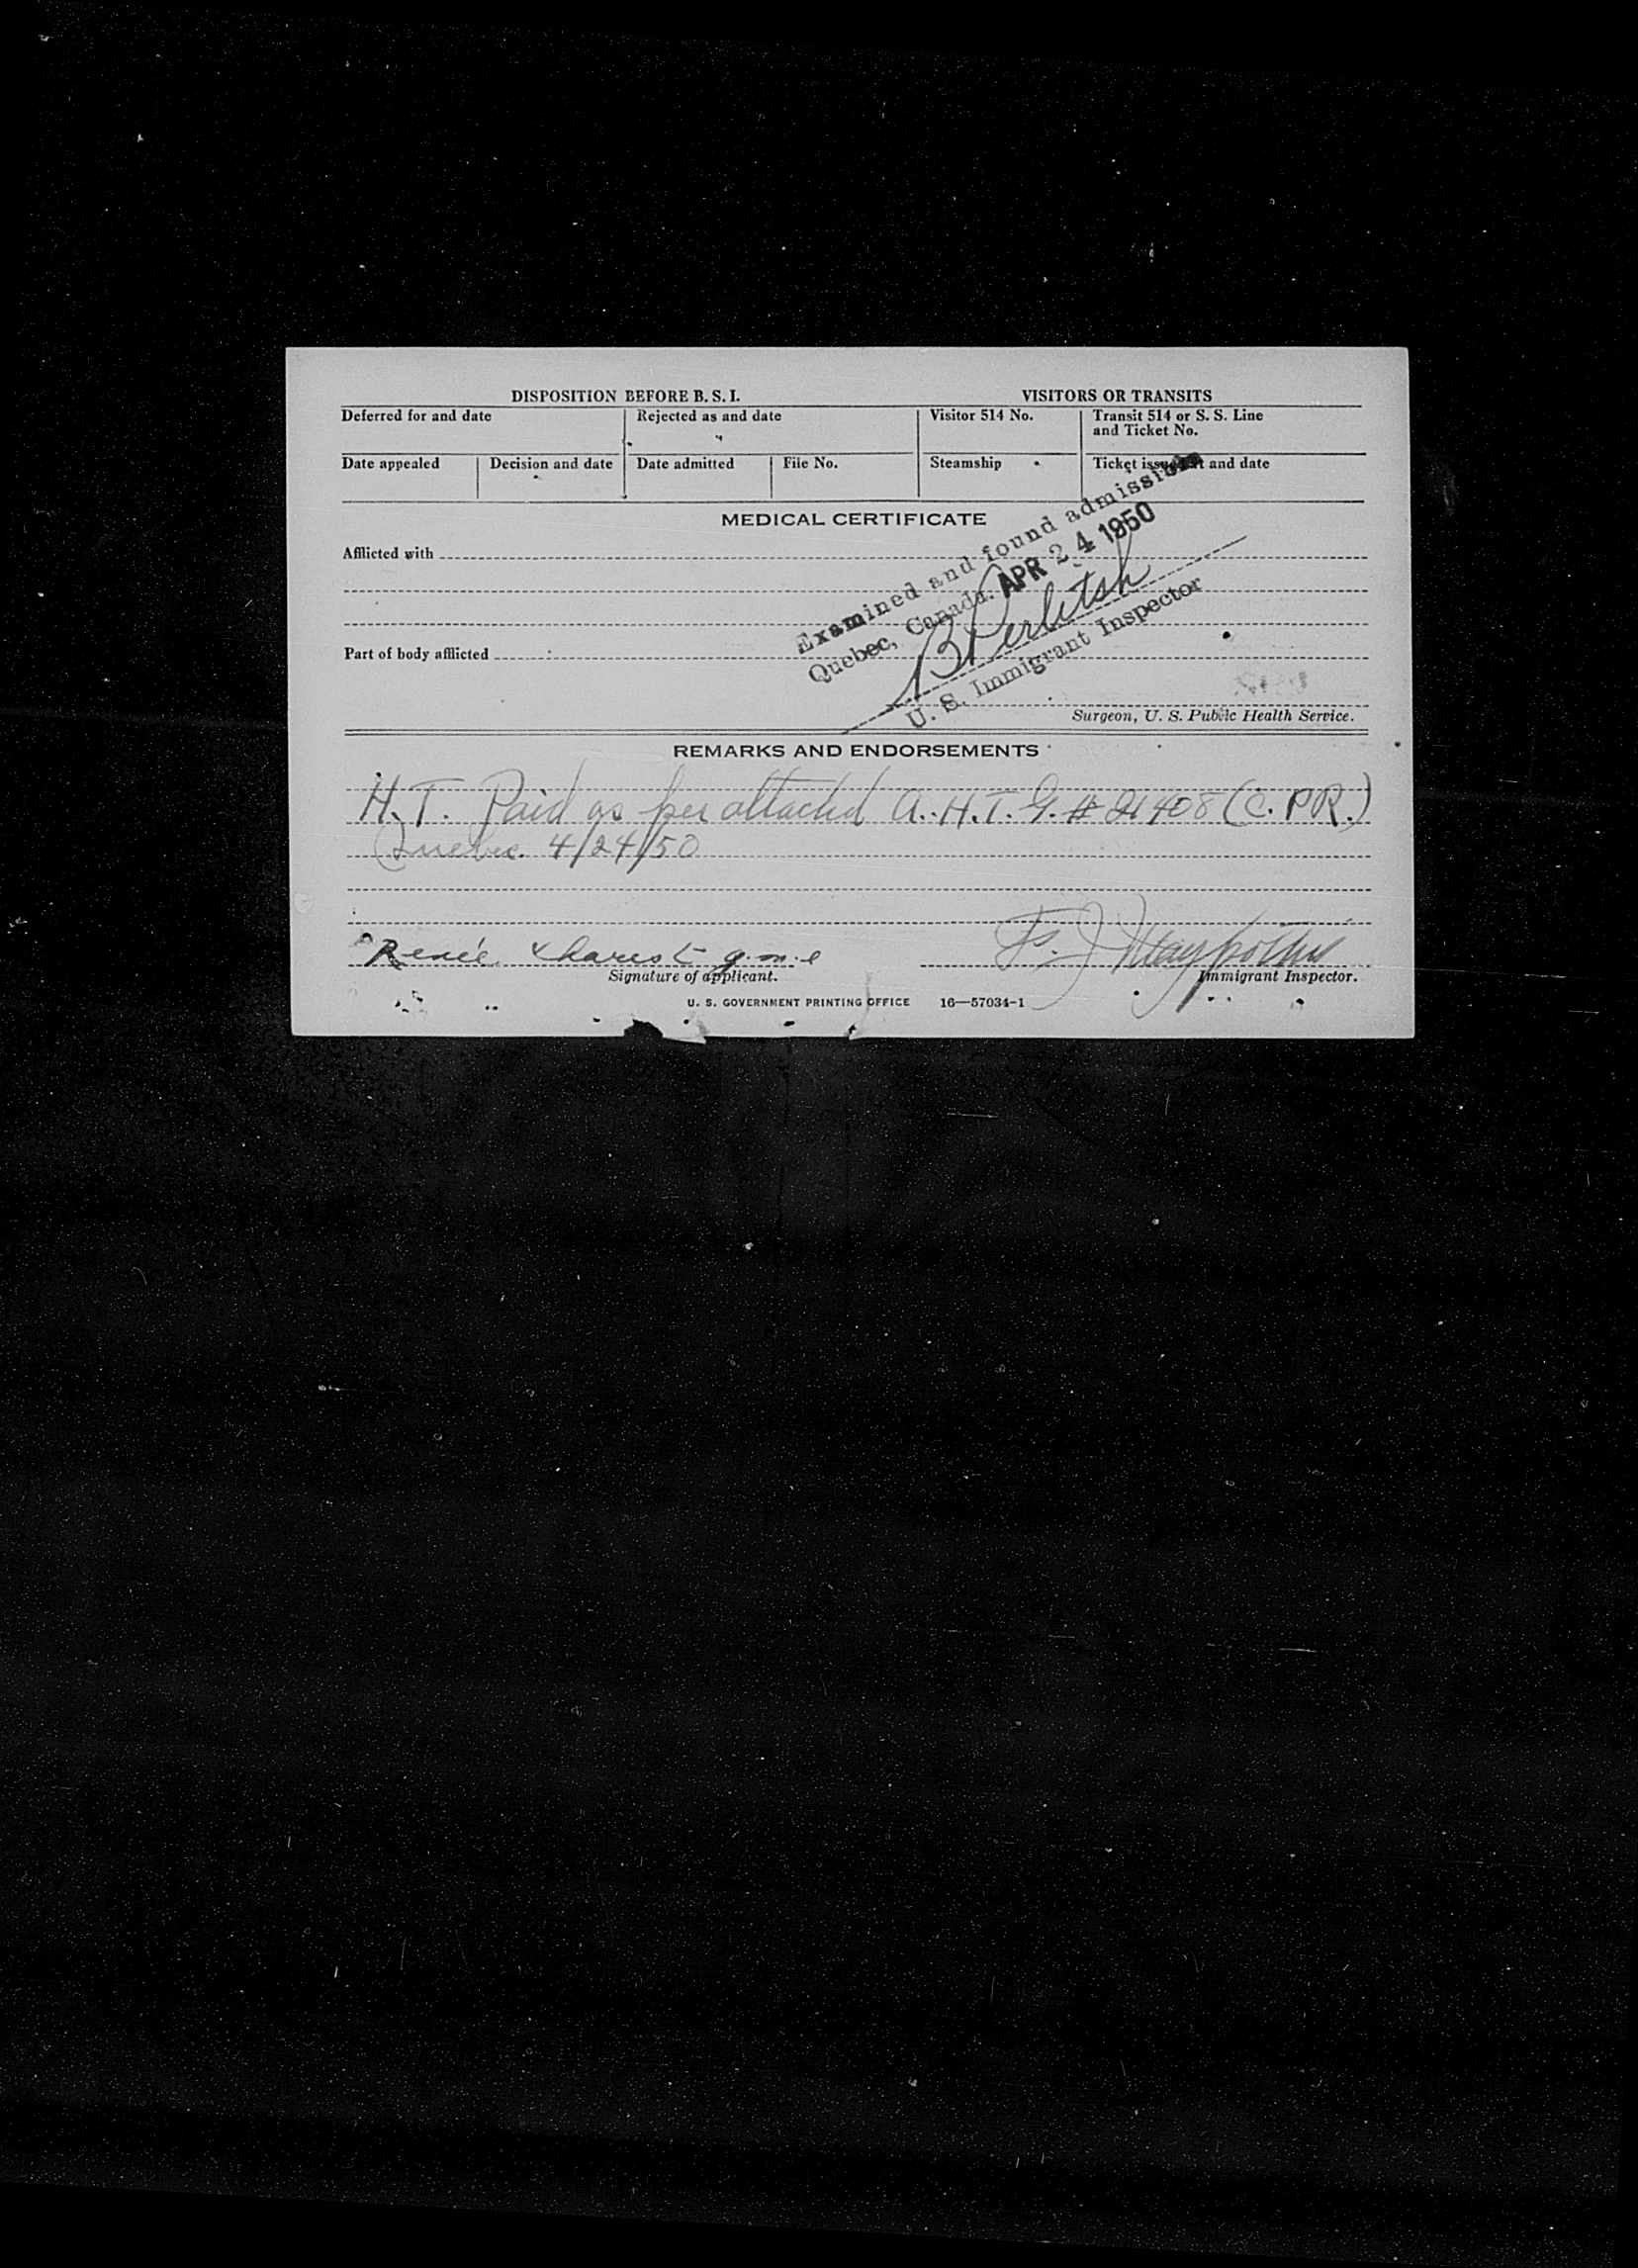 DISPOSITION BEFORE B. S. I.
VISITORS OR TRANSITS
Deferred for and date
Rejected as and date
Visitor 514 No.
Transit 514 or S. S. Line
and Ticket No.
Date appealed
Decision and date
Date admitted
File No.
Steamship
Ticket issued at and date
MEDICAL CERTIFICATE
Examined and found admissible
Quebec, Canada. APR 24 1950
U. S. Immigrant Inspector
Afflicted with
Part of body afflicted
Surgeon, U. S. Public Health Service.
REMARKS AND ENDORSEMENTS
H.T. Paid as per attached A.H.T.G. # 21408 (C.P.R.)
Quebec. 4/24/50
Renée Charest
Signature of applicant.
Immigrant Inspector.
U. S. GOVERNMENT PRINTING OFFICE 16—57034-1